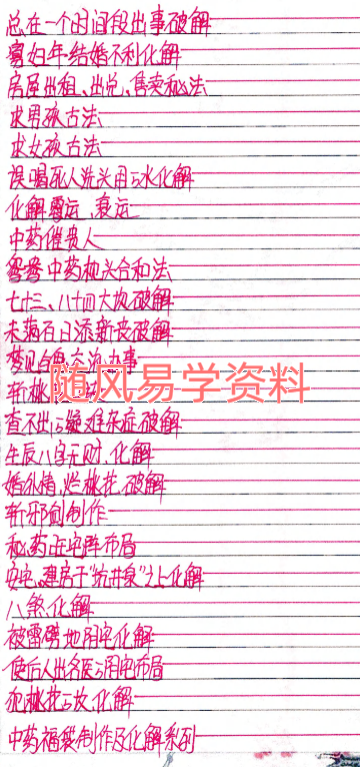 总在一个时间段出事破解
寡妇年结婚不利化解
房屋出租、出兑、售卖秘法
求男孩古法
求女孩古法
误喝死人洗头用的水化解
化解霉运、衰运
中药催贵人
鸳鸯中药枕头合和法
七十三、八十四大坎破解
夫满百日添新丧破解
梦见白龟
斩桃
随风易学资料
查不出的疑难杂症破解
生辰八字无财、化解
婚外情、烂桃花、破解
斩邪剑制作
秘药旺宅阵布局
安宅、建房于“坑井泉”之上化解
八煞、化解
被雷劈地用宅化解
使后人出名医的用宅布局
犯桃花的坟、化解
中药福袋制作及化解系列